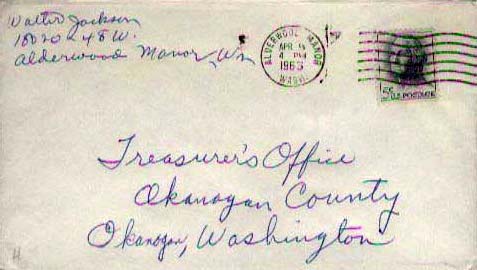 Walter Jackson
18020 - 48 W.
Alderwood Manor, Wn
ALDERWOOD MANOR
APR
PM
1963
WASH.
5¢ U.S. POSTAGE
Treasurer's Office
Okanogan County
Okanogan, Washington